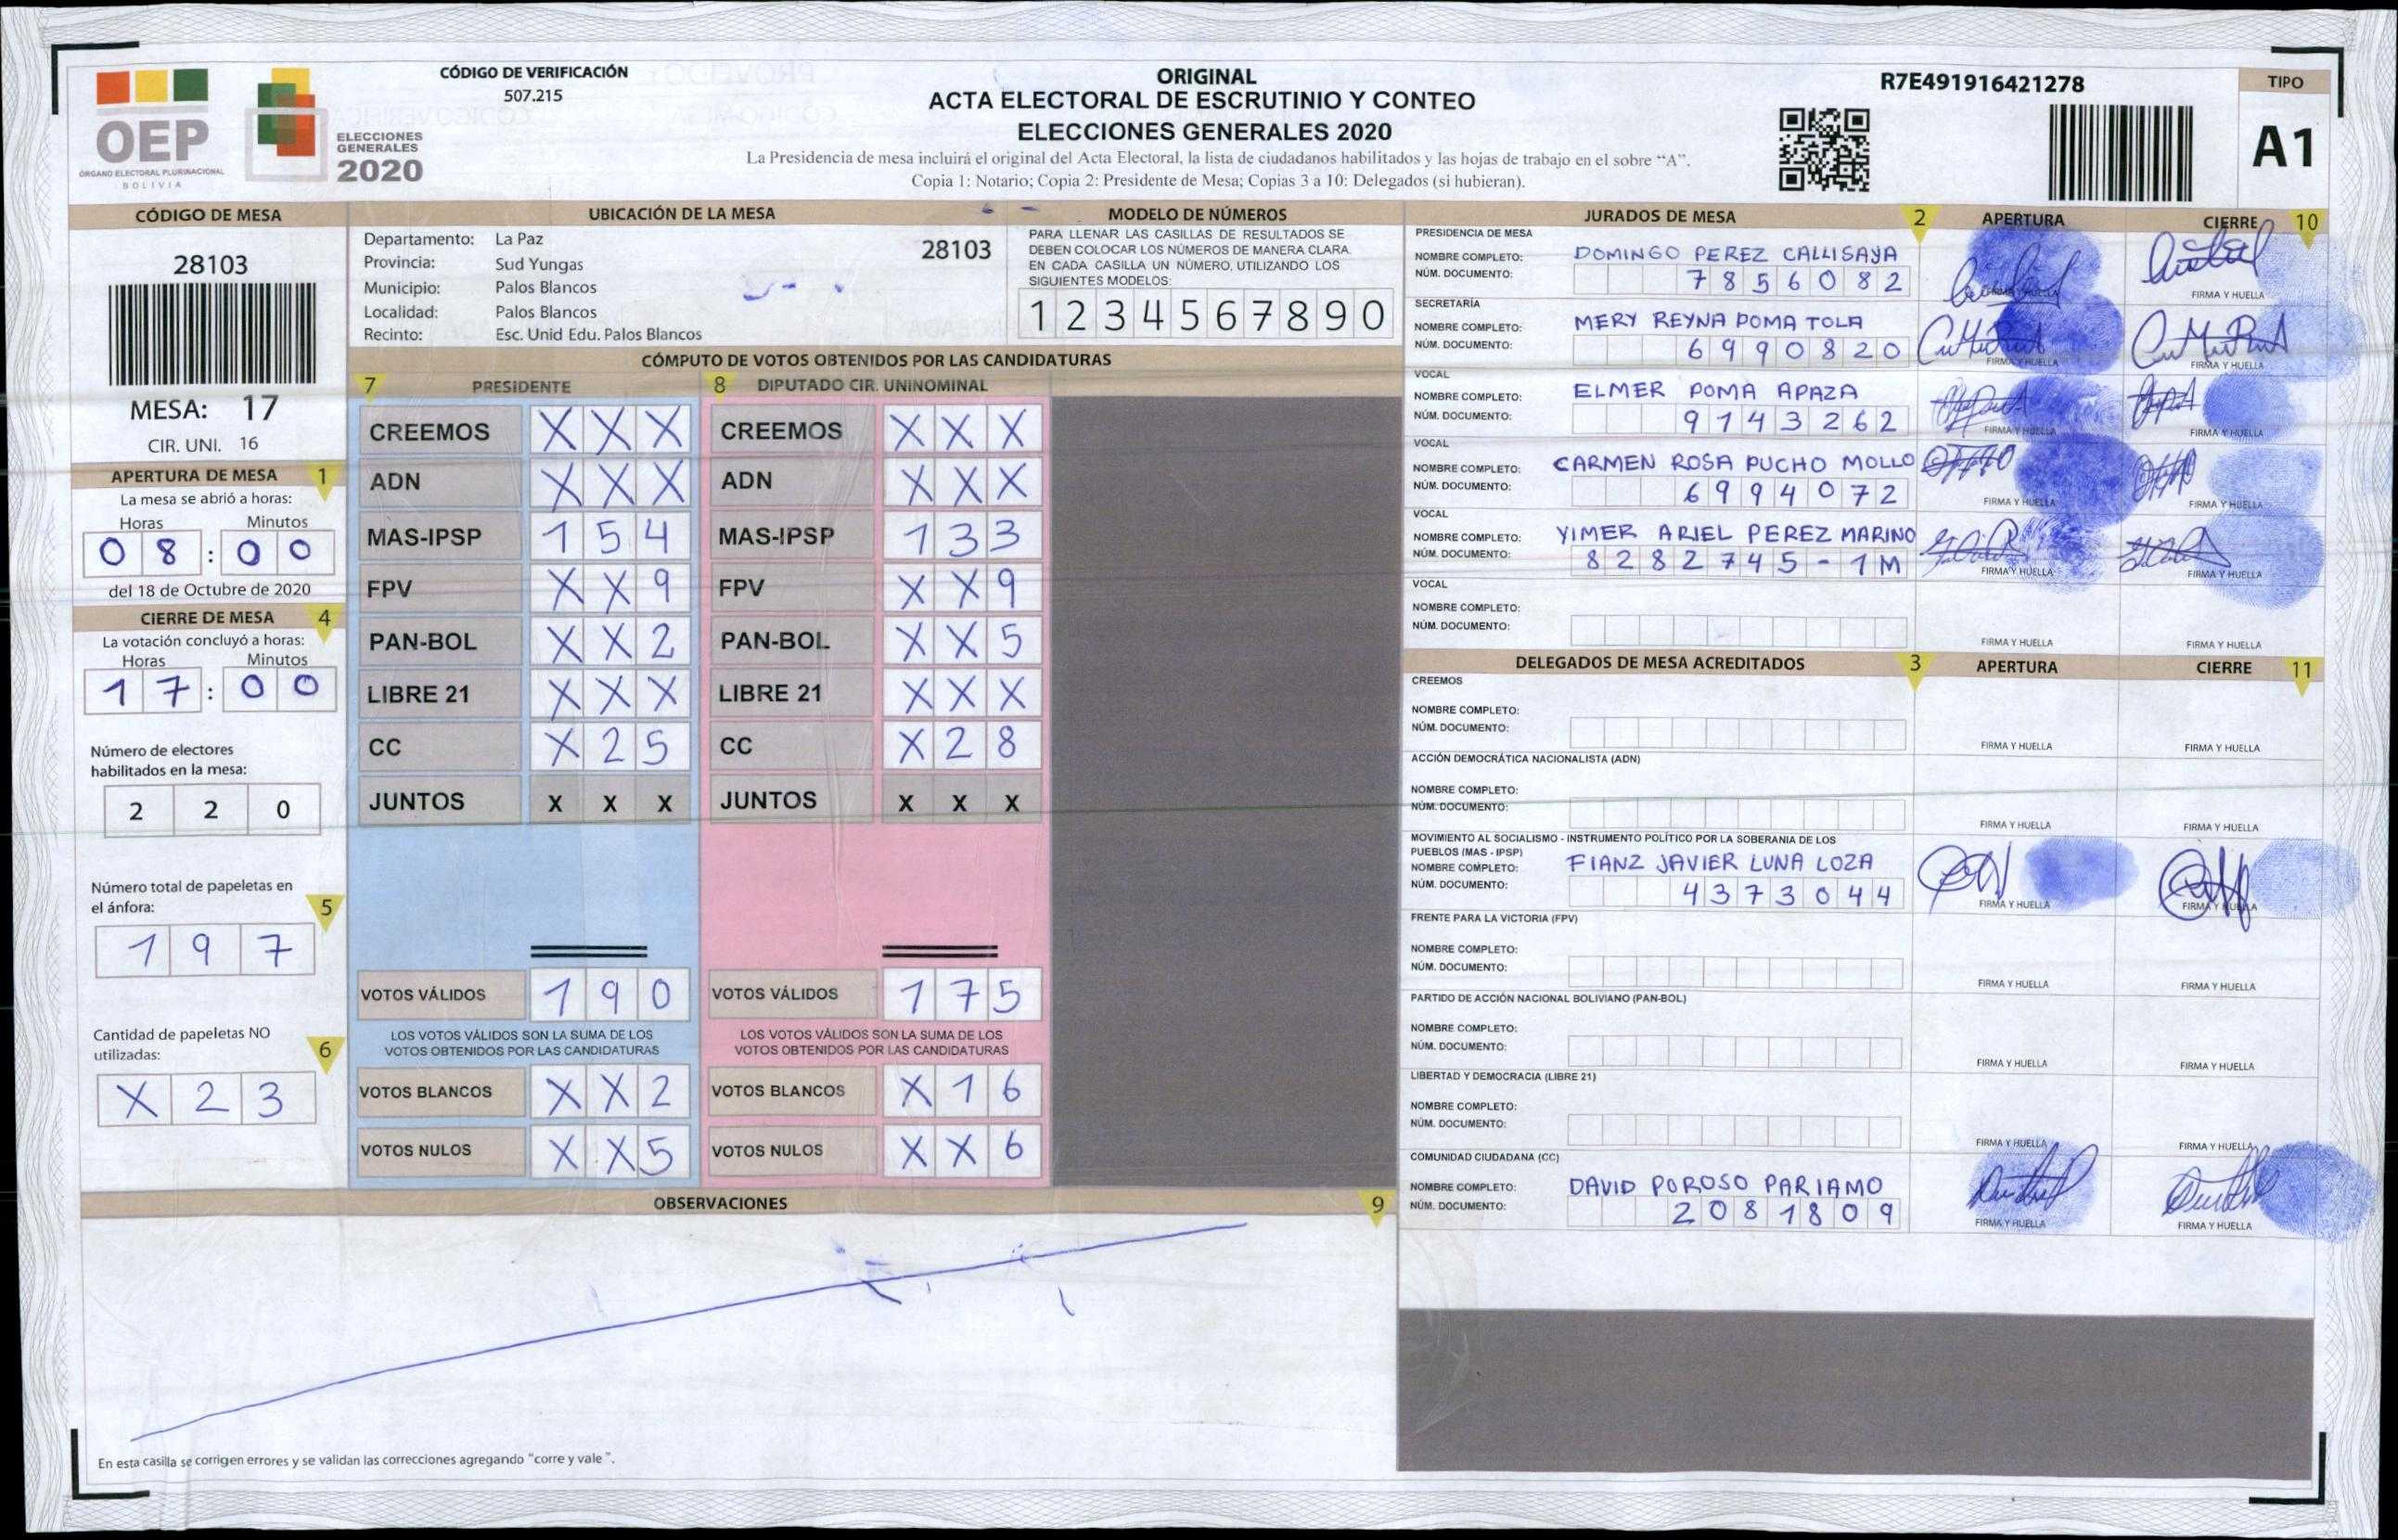 OEP
ÓRGANO ELECTORAL PLURINACIONAL
BOLIVIA
ELECCIONES
GENERALES
2020
CÓDIGO DE VERIFICACIÓN
507.215
ORIGINAL
ACTA ELECTORAL DE ESCRUTINIO Y CONTEO
ELECCIONES GENERALES 2020
La Presidencia de mesa incluirá el original del Acta Electoral, la lista de ciudadanos habilitados y las hojas de trabajo en el sobre “A”.
Copia 1: Notario; Copia 2: Presidente de Mesa; Copias 3 a 10: Delegados (si hubieran).
R7E491916421278
TIPO
A1
CÓDIGO DE MESA
28103
MESA: 17
CIR. UNI. 16
APERTURA DE MESA 1
La mesa se abrió a horas:
Horas Minutos
08 : 00
del 18 de Octubre de 2020
CIERRE DE MESA 4
La votación concluyó a horas:
Horas Minutos
17 : 00
Número de electores
habilitados en la mesa:
2 2 0
Número total de papeletas en
el ánfora: 5
1 9 7
Cantidad de papeletas NO
utilizadas: 6
X 2 3
UBICACIÓN DE LA MESA
Departamento: La Paz
Provincia: Sud Yungas
Municipio: Palos Blancos
Localidad: Palos Blancos
Recinto: Esc. Unid Edu. Palos Blancos
28103
MODELO DE NÚMEROS
PARA LLENAR LAS CASILLAS DE RESULTADOS SE
DEBEN COLOCAR LOS NÚMEROS DE MANERA CLARA.
EN CADA CASILLA UN NÚMERO, UTILIZANDO LOS
SIGUIENTES MODELOS:
1 2 3 4 5 6 7 8 9 0
CÓMPUTO DE VOTOS OBTENIDOS POR LAS CANDIDATURAS
7 PRESIDENTE 8 DIPUTADO CIR. UNINOMINAL
CREEMOS X X X CREEMOS X X X
ADN X X X ADN X X X
MAS-IPSP 1 5 4 MAS-IPSP 1 3 3
FPV X X 9 FPV X X 9
PAN-BOL X X 2 PAN-BOL X X 5
LIBRE 21 X X X LIBRE 21 X X X
CC X 2 5 CC X 2 8
JUNTOS X X X JUNTOS X X X
VOTOS VÁLIDOS 1 9 0 VOTOS VÁLIDOS 1 7 5
LOS VOTOS VÁLIDOS SON LA SUMA DE LOS LOS VOTOS VÁLIDOS SON LA SUMA DE LOS
VOTOS OBTENIDOS POR LAS CANDIDATURAS VOTOS OBTENIDOS POR LAS CANDIDATURAS
VOTOS BLANCOS X X 2 VOTOS BLANCOS X 1 6
VOTOS NULOS X X 5 VOTOS NULOS X X 6
OBSERVACIONES 9
En esta casilla se corrigen errores y se validan las correcciones agregando “corre y vale”.
JURADOS DE MESA 2 APERTURA CIERRE 10
PRESIDENCIA DE MESA
NOMBRE COMPLETO: DOMINGO PEREZ CALLISAYA
NÚM. DOCUMENTO: 7856082
FIRMA Y HUELLA FIRMA Y HUELLA
SECRETARÍA
NOMBRE COMPLETO: MERY REYNA POMA TOLA
NÚM. DOCUMENTO: 6990820
FIRMA Y HUELLA FIRMA Y HUELLA
VOCAL
NOMBRE COMPLETO: ELMER POMA APAZA
NÚM. DOCUMENTO: 9143262
FIRMA Y HUELLA FIRMA Y HUELLA
VOCAL
NOMBRE COMPLETO: CARMEN ROSA PUCHO MOLLO
NÚM. DOCUMENTO: 6994072
FIRMA Y HUELLA FIRMA Y HUELLA
VOCAL
NOMBRE COMPLETO: YIMER ARIEL PEREZ MARINO
NÚM. DOCUMENTO: 8282745-1M
FIRMA Y HUELLA FIRMA Y HUELLA
VOCAL
NOMBRE COMPLETO:
NÚM. DOCUMENTO:
FIRMA Y HUELLA FIRMA Y HUELLA
DELEGADOS DE MESA ACREDITADOS 3 APERTURA CIERRE 11
CREEMOS
NOMBRE COMPLETO:
NÚM. DOCUMENTO:
FIRMA Y HUELLA FIRMA Y HUELLA
ACCIÓN DEMOCRÁTICA NACIONALISTA (ADN)
NOMBRE COMPLETO:
NÚM. DOCUMENTO:
FIRMA Y HUELLA FIRMA Y HUELLA
MOVIMIENTO AL SOCIALISMO - INSTRUMENTO POLÍTICO POR LA SOBERANIA DE LOS
PUEBLOS (MAS - IPSP)
NOMBRE COMPLETO: FIANZ JAVIER LUNA LOZA
NÚM. DOCUMENTO: 4373044
FIRMA Y HUELLA FIRMA Y HUELLA
FRENTE PARA LA VICTORIA (FPV)
NOMBRE COMPLETO:
NÚM. DOCUMENTO:
FIRMA Y HUELLA FIRMA Y HUELLA
PARTIDO DE ACCIÓN NACIONAL BOLIVIANO (PAN-BOL)
NOMBRE COMPLETO:
NÚM. DOCUMENTO:
FIRMA Y HUELLA FIRMA Y HUELLA
LIBERTAD Y DEMOCRACIA (LIBRE 21)
NOMBRE COMPLETO:
NÚM. DOCUMENTO:
FIRMA Y HUELLA FIRMA Y HUELLA
COMUNIDAD CIUDADANA (CC)
NOMBRE COMPLETO: DAVID POROSO PARIAMO
NÚM. DOCUMENTO: 2081809
FIRMA Y HUELLA FIRMA Y HUELLA